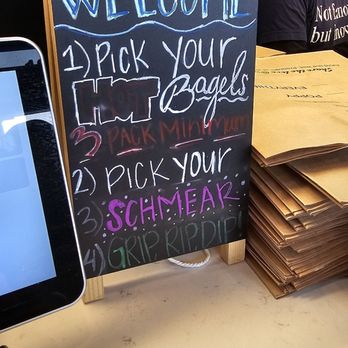 WELCOME
1) PICK YOUR
HOT Bagels
3 PACK MINIMUM
2) PICK YOUR
3) SCHMEAR
4) GRIP, RIP, DIP!
EVERYTHING
POPPY
but now